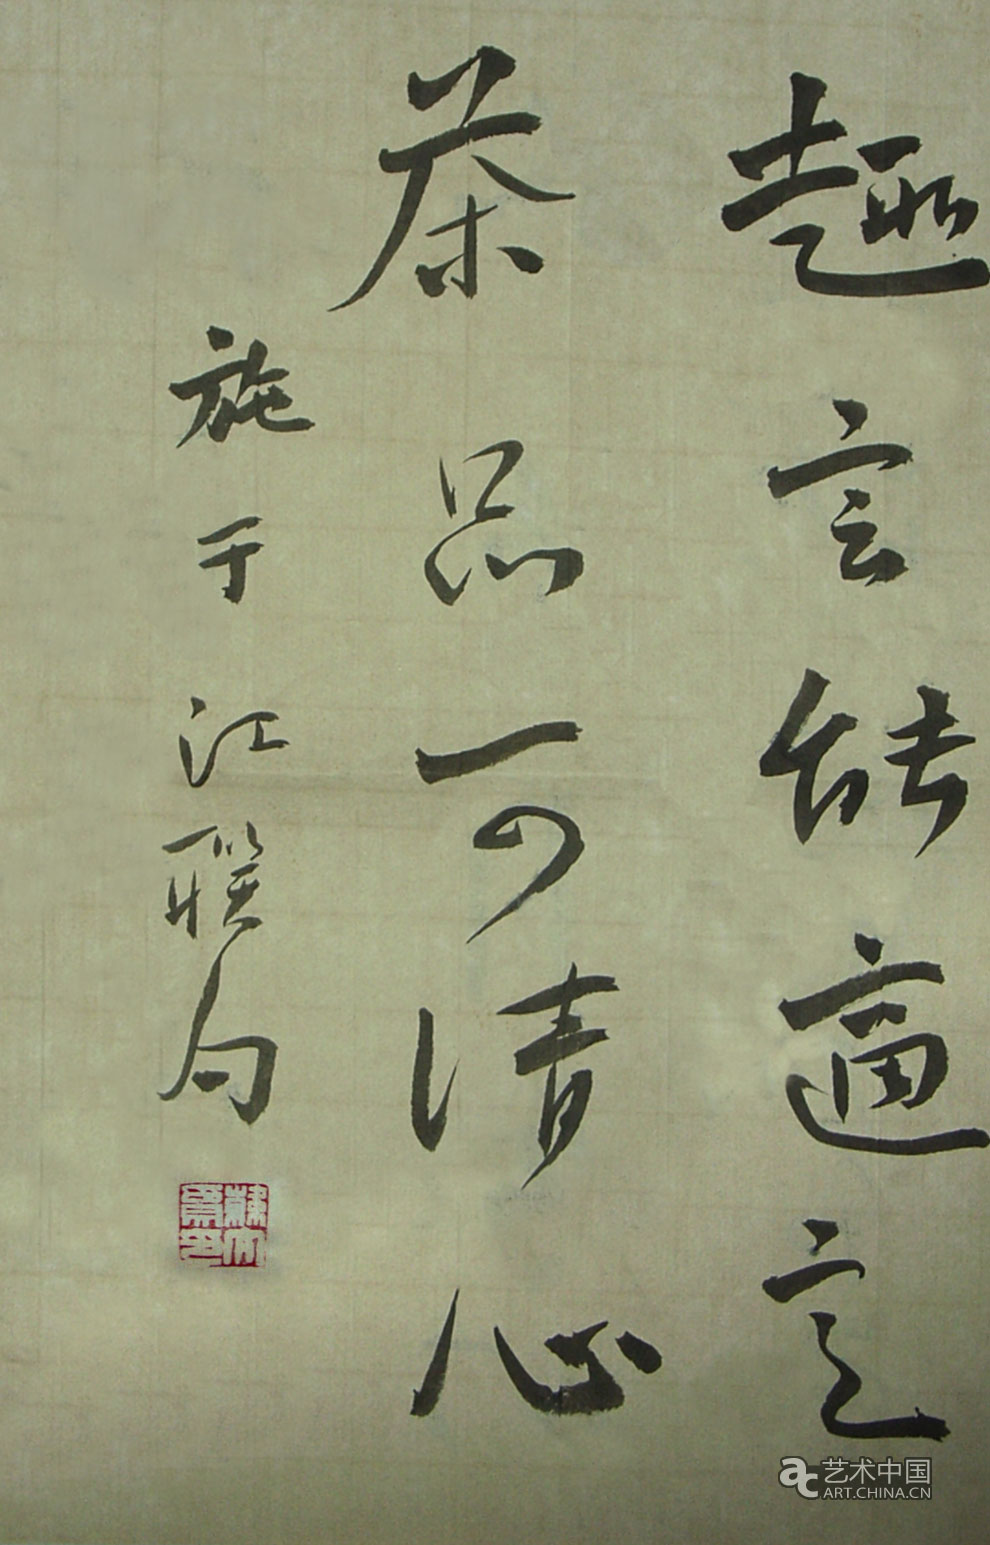 趣言能適意
茶品可清心
施于江聯句
ac 艺术中国
ART.CHINA.CN